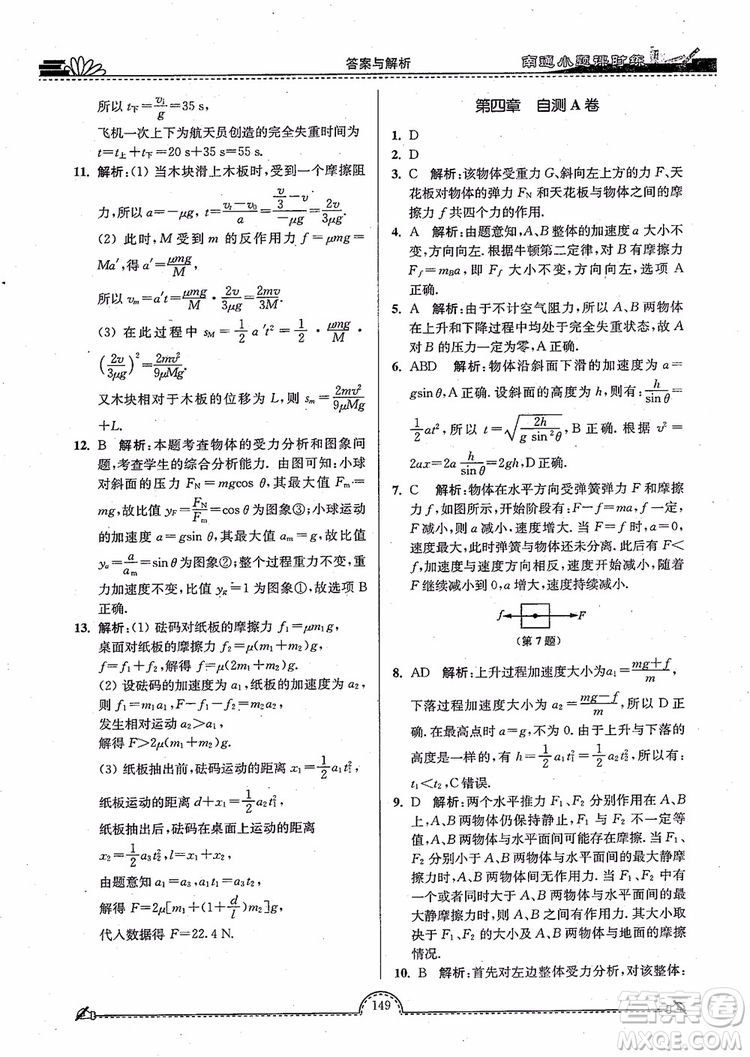 答案与解析
南通小题课时练
所以 t下=v₁/g=35 s,
飞机一次上下为航天员创造的完全失重时间为
t=t上+t下=20 s+35 s=55 s.
11. 解析:(1) 当木块滑上木板时,受到一个摩擦阻
力,所以 a=-μg, t=(vt-v0)/a=(v/3-v)/(-μg)=2v/(3μg).
(2) 此时,M 受到 m 的反作用力 f=μmg=
Ma′,得 a′=μmg/M,
所以 vm=a′t=μmg/M·2v/(3μg)=2mv/(3M).
(3) 在此过程中 sM=1/2 a′t²=1/2·μmg/M·
(2v/(3μg))²=2mv²/(9μMg).
又木块相对于木板的位移为 L, sm=2mv²/(9μMg)
+L.
12. B 解析:本题考查物体的受力分析和图象问
题,考查学生的综合分析能力. 由图可知:小球
对斜面的压力 FN=mgcos θ,其最大值 Fm=
mg,故比值 yF=FN/Fm=cos θ 为图象③;小球运动
的加速度 a=gsin θ,其最大值 am=g,故比值
ya=a/am=sin θ 为图象②;整个过程重力不变,重
力加速度不变,比值 yg=1 为图象①,故选项 B
正确.
13. 解析:(1) 砝码对纸板的摩擦力 f1=μm1g,
桌面对纸板的摩擦力 f2=μ(m1+m2)g,
f=f1+f2,解得 f=μ(2m1+m2)g.
(2) 设砝码的加速度为 a1,纸板的加速度为 a2,
则 f1=m1a1, F-f1-f2=m2a2,
发生相对运动 a2>a1,
解得 F>2μ(m1+m2)g.
(3) 纸板抽出前,砝码运动的距离 x1=1/2 a1t1²,
纸板运动的距离 d+x1=1/2 a2t1²,
纸板抽出后,砝码在桌面上运动的距离
x2=1/2 a3t2², l=x1+x2,
由题意知 a1=a3, a1t1=a3t2,
解得 F=2μ[m1+(1+d/l)m2]g,
代入数据得 F=22.4 N.
第四章 自测 A 卷
1. D
2. D
3. C 解析:该物体受重力 G、斜向左上方的力 F、天
花板对物体的弹力 FN 和天花板与物体之间的摩
擦力 f 共四个力的作用.
4. A 解析:由题意知,A、B 整体的加速度大小不
变,方向向左. 根据牛顿第二定律,可得摩擦力
Ff=mBa,即 Ff 大小不变,方向向左,选项 A
正确.
5. A 解析:由于不计空气阻力,所以 A、B 两物体
在上升和下降过程中均处于完全失重状态,故 A
对 B 的压力一定为零,A 正确.
6. ABD 解析:物体沿斜面下滑的加速度为 a=
gsin θ,A 正确. 设斜面的高度为 h,则有:h/sin θ=
1/2 at²,所以 t=√(2h/(g sin²θ)),B 正确,C 错误. 而 v²=
2ax=2a h/sin θ=2gh,D 正确.
7. C 解析:物体在水平方向受弹簧弹力 F 和摩擦
力 f,如图所示,开始阶段有:F-f=ma,f 一定,
F 减小,a 减小,速度持续增加. 当 F=f 时,a=0,
速度最大,此时弹簧与物体还未分离. 此后 F<
f,加速度反向,速度开始减小,随着 F 继续减小
F 继续减小到 0,a 增大,速度持续减小.
f F
(第 7 题)
8. AD 解析:上升过程加速度大小为 a1=(mg+f)/m,
下落过程加速度大小为 a2=(mg-f)/m,所以 a1>
a2. 在最高点时 a=g,f=0. 由于上升与下落的
高度是一样的,h=1/2 a1t1²,h=1/2 a2t2²,所以
t1<t2,C 错误.
9. D 解析:两个水平推力 F1、F2 分别作用在 A、B
上时,A、B 两物体仍保持静止,F1、F2 不一定等
值,A、B 两物体与水平面间可能存在摩擦. 当 F1、
F2 分别小于 A、B 两物体与水平面间的最大静摩
擦力时,A、B 间无相互作用力. 当 F1、F2 的大小
有一个或两个都大于 A、B 两物体与水平面间的
最大静摩擦力时,A、B 间有相互作用力. 其大小取
决于 F1、F2 的大小和 A、B 两物体与地面的摩擦
情况.
10. B 解析:首先对左边整体受力分析,对该整体:
149
答案卷
MXQE.COM